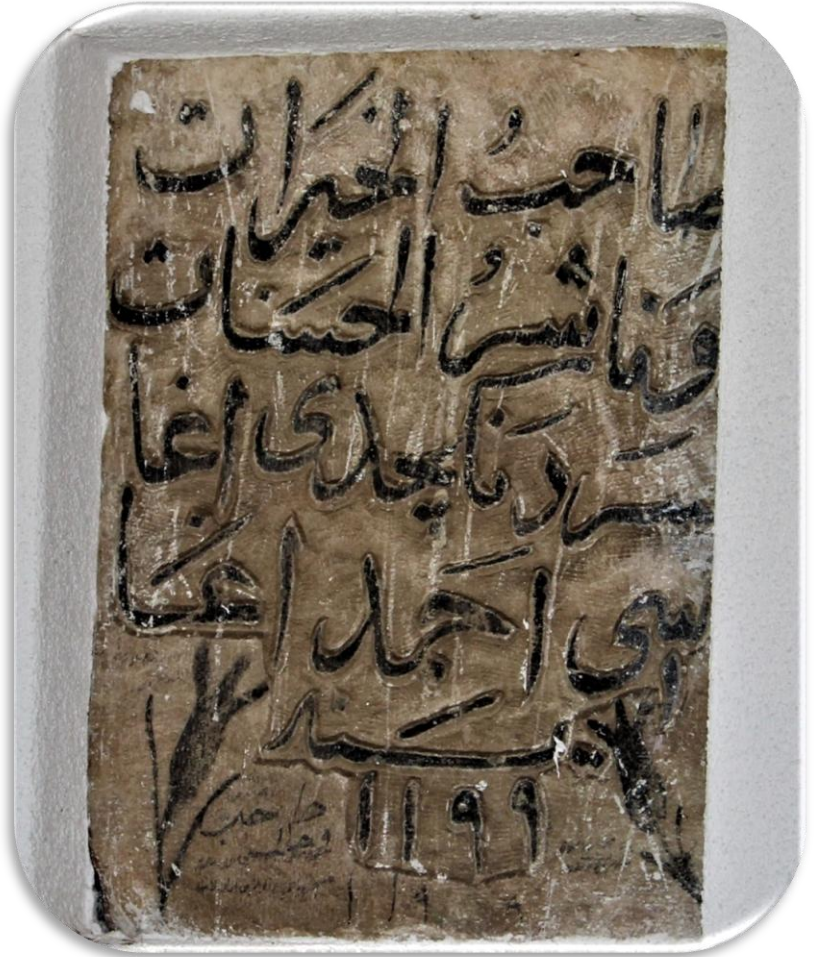 صاحبُ الخيرات
وَناشرُ الحسَنات
سَردَنكجدى اغا
سى احمد اغا
سنه
١١٩٩